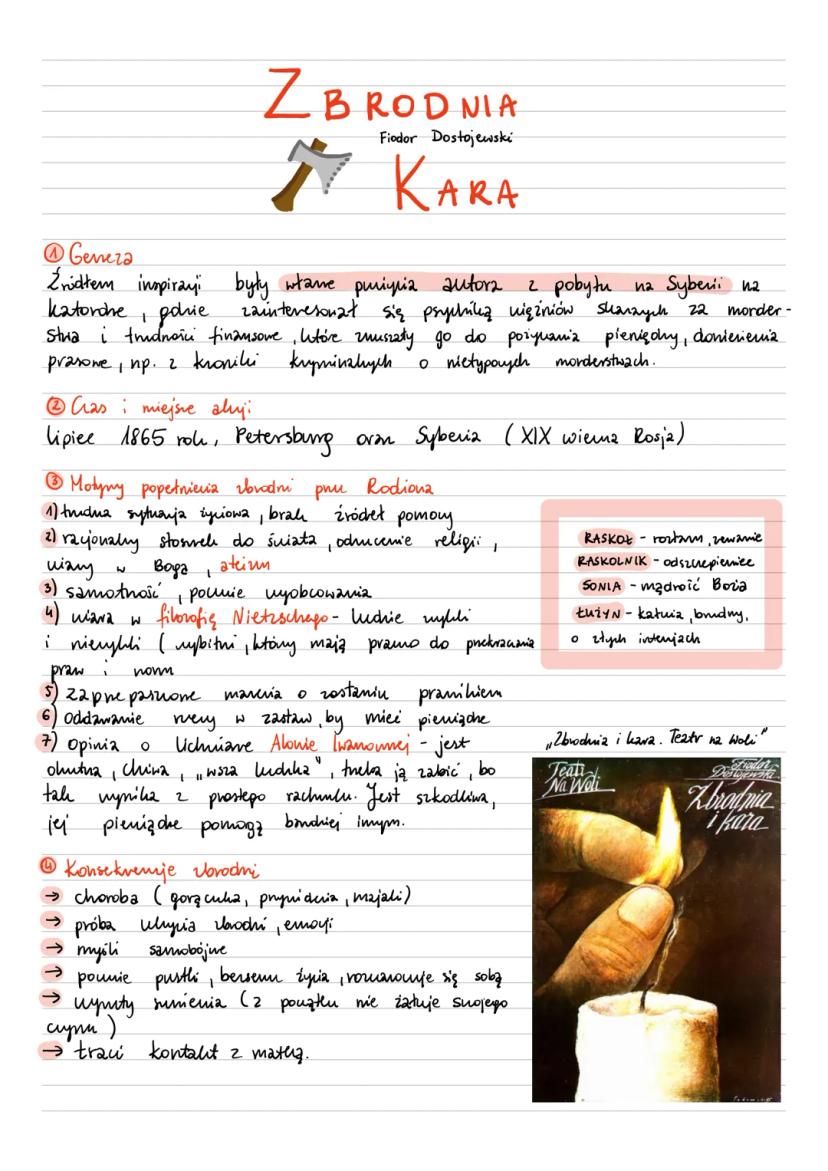 ZBRODNIA
Fiodor Dostojewski
KARA
① Geneza
Źródłem inspiracji były własne przeżycia autora z pobytu na Syberii na
katordze, gdzie zainteresował się psychiką więźniów skazanych za morder-
stwa i trudności finansowe, które zmuszały go do pożyczania pieniędzy, doniesienia
prasowe, np. z kroniki kryminalnych o nietypowych morderstwach.
② Czas i miejsce akcji
lipiec 1865 roku, Petersburg oraz Syberia (XIX wieczna Rosja)
③ Motywy popełnienia zbrodni przez Rodiona
1) trudna sytuacja życiowa, brak źródeł pomocy
2) racjonalny stosunek do świata, odrzucenie religii,
wiary w Boga, ateizm
3) samotność, poczucie wyobcowania
4) wiara w filozofię Nietzschego - ludzie zwykli
i niezwykli (wybitni, którzy mają prawo do przekraczania
praw i norm
5) Zaprzepaszczone marzenia o zostaniu prawnikiem
6) Oddawanie rzeczy w zastaw, by mieć pieniądze
7) Opinia o lichwiarce Alonie Iwanownej - jest
okrutna, chciwa, „wsza ludzka", trzeba ją zabić, bo
tak wynika z prostego rachunku. Jest szkodliwa,
jej pieniądze pomogą bardziej innym.
RASKOŁ - rozłam, zerwanie
RASKOLNIK - odszczepieniec
SONIA - mądrość Boża
ŁUŻYN - kałuża, brudny,
o złych intencjach
④ Konsekwencje zbrodni
→ choroba (gorączka, przywidzenia, majaki)
→ próba ukrycia zbrodni, emocji
→ myśli samobójcze
→ poczucie pustki, bezsensu życia, rozczarowuje się sobą
→ wyrzuty sumienia (z początku nie żałuje swojego
czynu)
→ traci kontakt z matką.
„Zbrodnia i kara. Teatr na Woli"
Teatr
Na Woli
Fiodor
Dostojewski
Zbrodnia
i kara